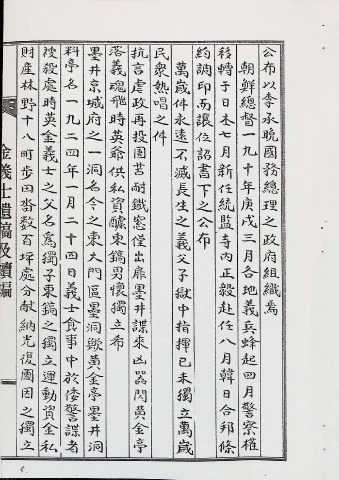 公布以李承晩國務總理之政府組織焉
朝鮮總督一九十年庚戌三月各地義兵蜂起四月警察權
移轉于日本七月新任統監寺内正毅赴任八月韓日合邦條
約調印而讓位詔書下之公布
萬歲件永遠不滅長生之義父子獄中指揮己未獨立萬歲
民衆熱唱之件
抗言虐政再投囹苦耐鐵窓僅出扉墨井諜來凶器閃黄金亭
落義魂飛時英爺供私資釀東鎬男懷獨立布
墨井京城府之一洞名今之東大門區墨洞歟黄金亭墨井洞
料亭名一九二四年一月二十四日義士食事中於倭警諜者
陵殺處時英金義士之父名爲獨子東鎬之獨立運動資金私
財産林野十八町步田畓數百坪處分献納光復團因之獨立
金義士遺稿及續編